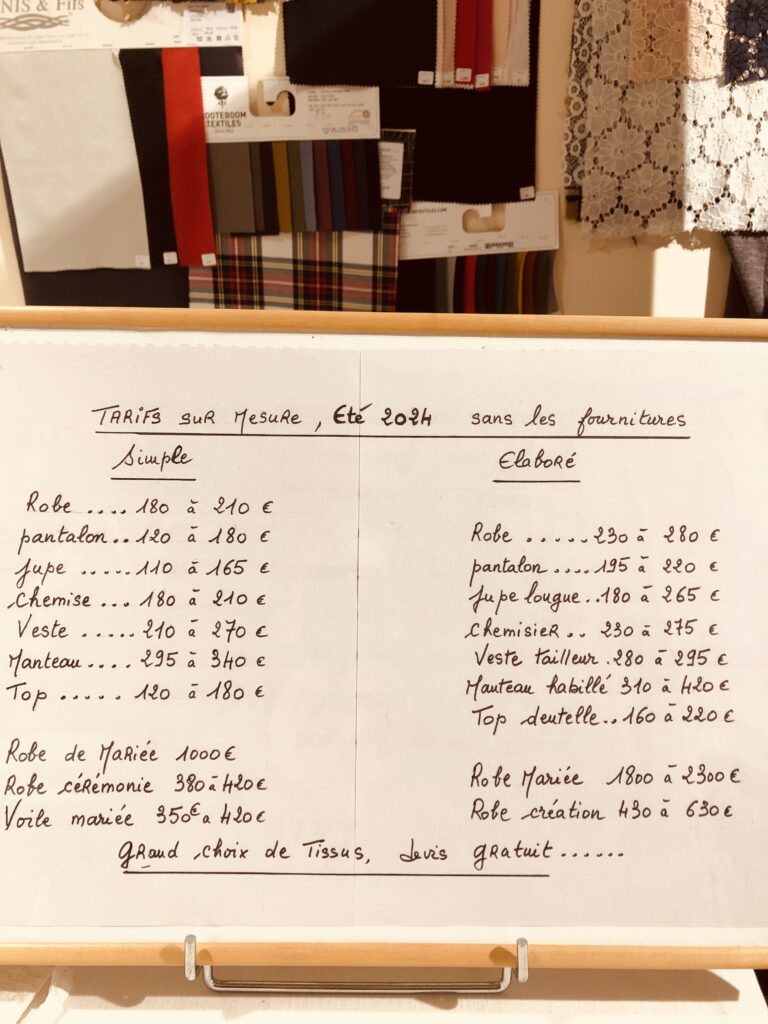 NIS & Fils
OOTEBOOM
TEXTILES
TARIFS SUR MESURE, Eté 2024 sans les fournitures
Simple
Robe .... 180 à 210 €
pantalon .. 120 à 180 €
jupe ..... 110 à 165 €
chemise ... 180 à 210 €
Veste ..... 210 à 270 €
Manteau .... 295 à 340 €
Top ..... 120 à 180 €
Robe de Mariée 1000 €
Robe cérémonie 380 à 420 €
Voile mariée 350€ a 420 €
Elaboré
Robe ..... 230 à 280 €
pantalon .... 195 à 220 €
jupe longue .. 180 à 265 €
chemisier .. 230 à 275 €
Veste tailleur . 280 à 295 €
Manteau habillé 310 à 420 €
Top dentelle .. 160 à 220 €
Robe Mariée 1800 à 2300 €
Robe création 430 à 630 €
Grand choix de Tissus, devis gratuit ......